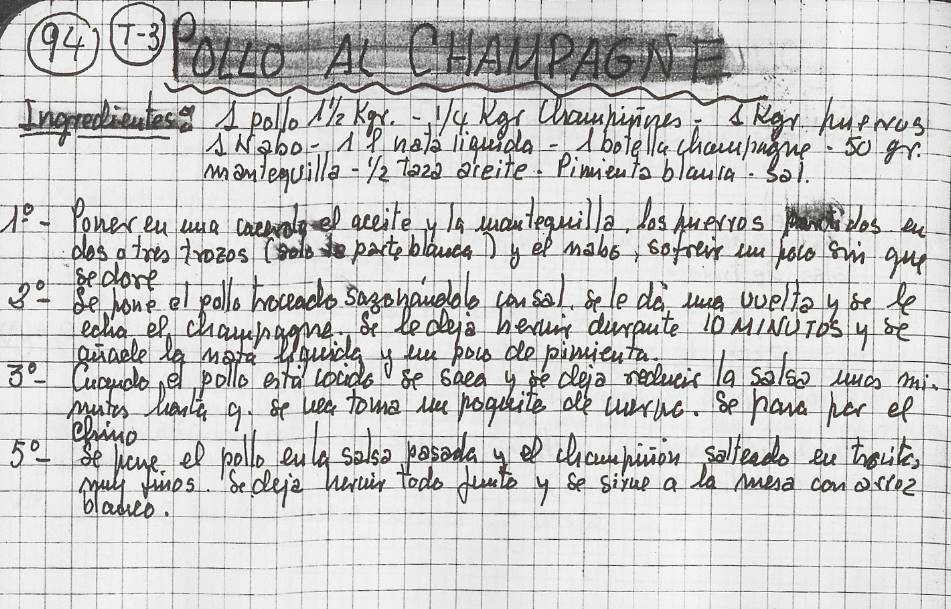 94 T-3 POLLO AL CHAMPAGNE
Ingredientes: 1 pollo 1½ Kgr. - ¼ Kgr Champiñones - 1 Kgr. puerros
1 Nabo - 1 l nata liquida - 1 botella champagne - 50 gr.
mantequilla - ½ taza aceite. Pimienta blanca. Sal.
1º- Poner en una cacerola el aceite y la mantequilla, los puerros partidos en
dos o tres trozos (solo la parte blanca) y el nabo, sofreir un poco sin que
se dore
2º- Se pone el pollo troceado sazonándolo con sal. Se le dá una vuelta y se le
echa el champagne. Se le deja hervir durante 10 MINUTOS y se
añade la nata líquida y un poco de pimienta.
3º- Cuando el pollo está cocido se saca y se deja reducir la salsa unos mi-
nutos hasta q. se vea toma un poquito de cuerpo. Se pasa por el
Chino
5º- Se pone el pollo en la salsa pasada y el champiñón salteado en trocitos
muy finos. Se deja hervir todo junto y se sirve a la mesa con arroz
blanco.